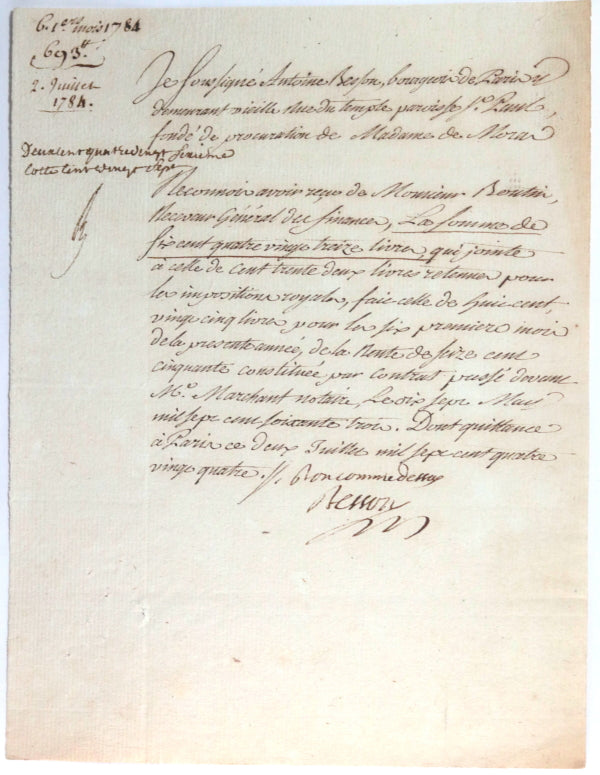 6. 1ers mois 1784
693.tt
2. Juillet
1784.
Deux cent quatre vingt seizieme
Cotte Cent vingt Sept
Je Soussigné Antoine Besson, bourgeois de Paris y
demeurant vieille Rue du temple paroisse St. Paul,
fondé de procuration de Madame de
Reconnois avoir reçu de Monsieur Boutin,
Receveur Général des finances, La Somme de
six cent quatre vingt treize livres, qui jointe
à celle de cent trente deux livres retenues pour
les impositions royales, fait celle de huit cent,
vingt cinq livres pour les six premiers mois
de la presente année, de la Rente de seize cent
cinquante constituée par contrat passé devant
Me. Marchant notaire, Le dix sept Mars
mil sept cent soixante trois. Dont quittance
à Paris ce deux Juillet mil sept cent quatre
vingt quatre. //. Bon comme dessus
Besson